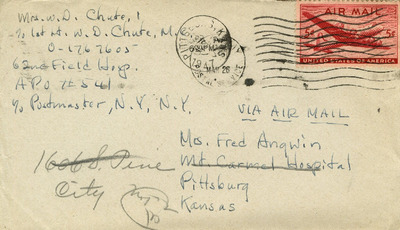 Mrs. W. D. Chute,
c/o 1st Lt. W. D. Chute, M.C.
O-1767605
62nd Field Hosp.
APO #541
c/o Postmaster, N.Y., N.Y.
PITTSBURG
KANS
AIR MAIL
5¢ 5¢
UNITED STATES OF AMERICA
VIA AIR MAIL
Mrs. Fred Angwin
Mt. Carmel Hospital
Pittsburg
Kansas
1606 S. Pine
City